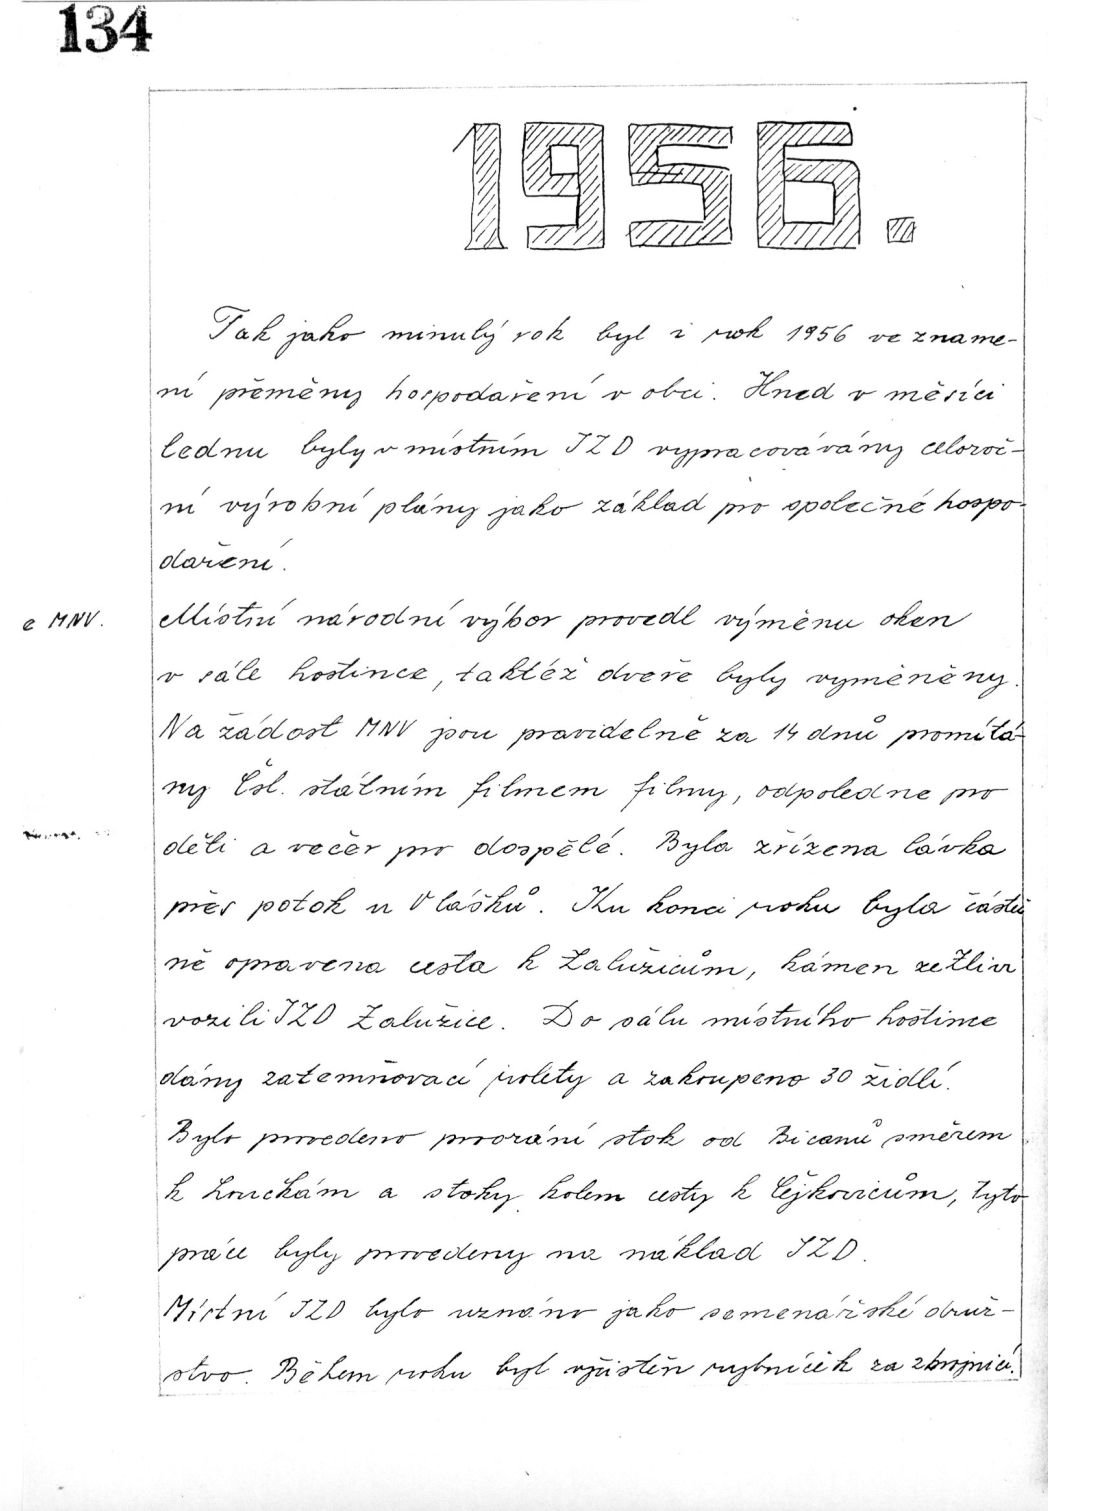 134
1956.
Tak jako minulý rok byl i rok 1956 ve zname-
ní přeměny hospodaření v obci. Hned v měsíci
lednu byly v místním JZD vypracovávány celoroč-
ní výrobní plány jako základ pro společné hospo-
daření.
e MNV.
Místní národní výbor provedl výměnu oken
v sále hostince, taktéž dveře byly vyměněny.
Na žádost MNV jsou pravidelně za 14 dnů promítá-
ny Čsl. státním filmem filmy, odpoledne pro
děti a večer pro dospělé. Byla zřízena lávka
přes potok u Vlášků. Ku konci roku byla částeč
ně opravena cesta k Zalužicům, kámen ze Zlivi
vozili JZD Zalužice. Do sálu místního hostince
dány zatemňovací rolety a zakoupeno 30 židlí.
Bylo provedeno prorání stok od Bicanů směrem
k Loukám a stoky kolem cesty k Čejkovicům, tyto
práce byly provedeny na náklad JZD.
Místní JZD bylo uznáno jako semenářské druž-
stvo. Během roku byl vyčistěn rybníček za zbrojnicí.